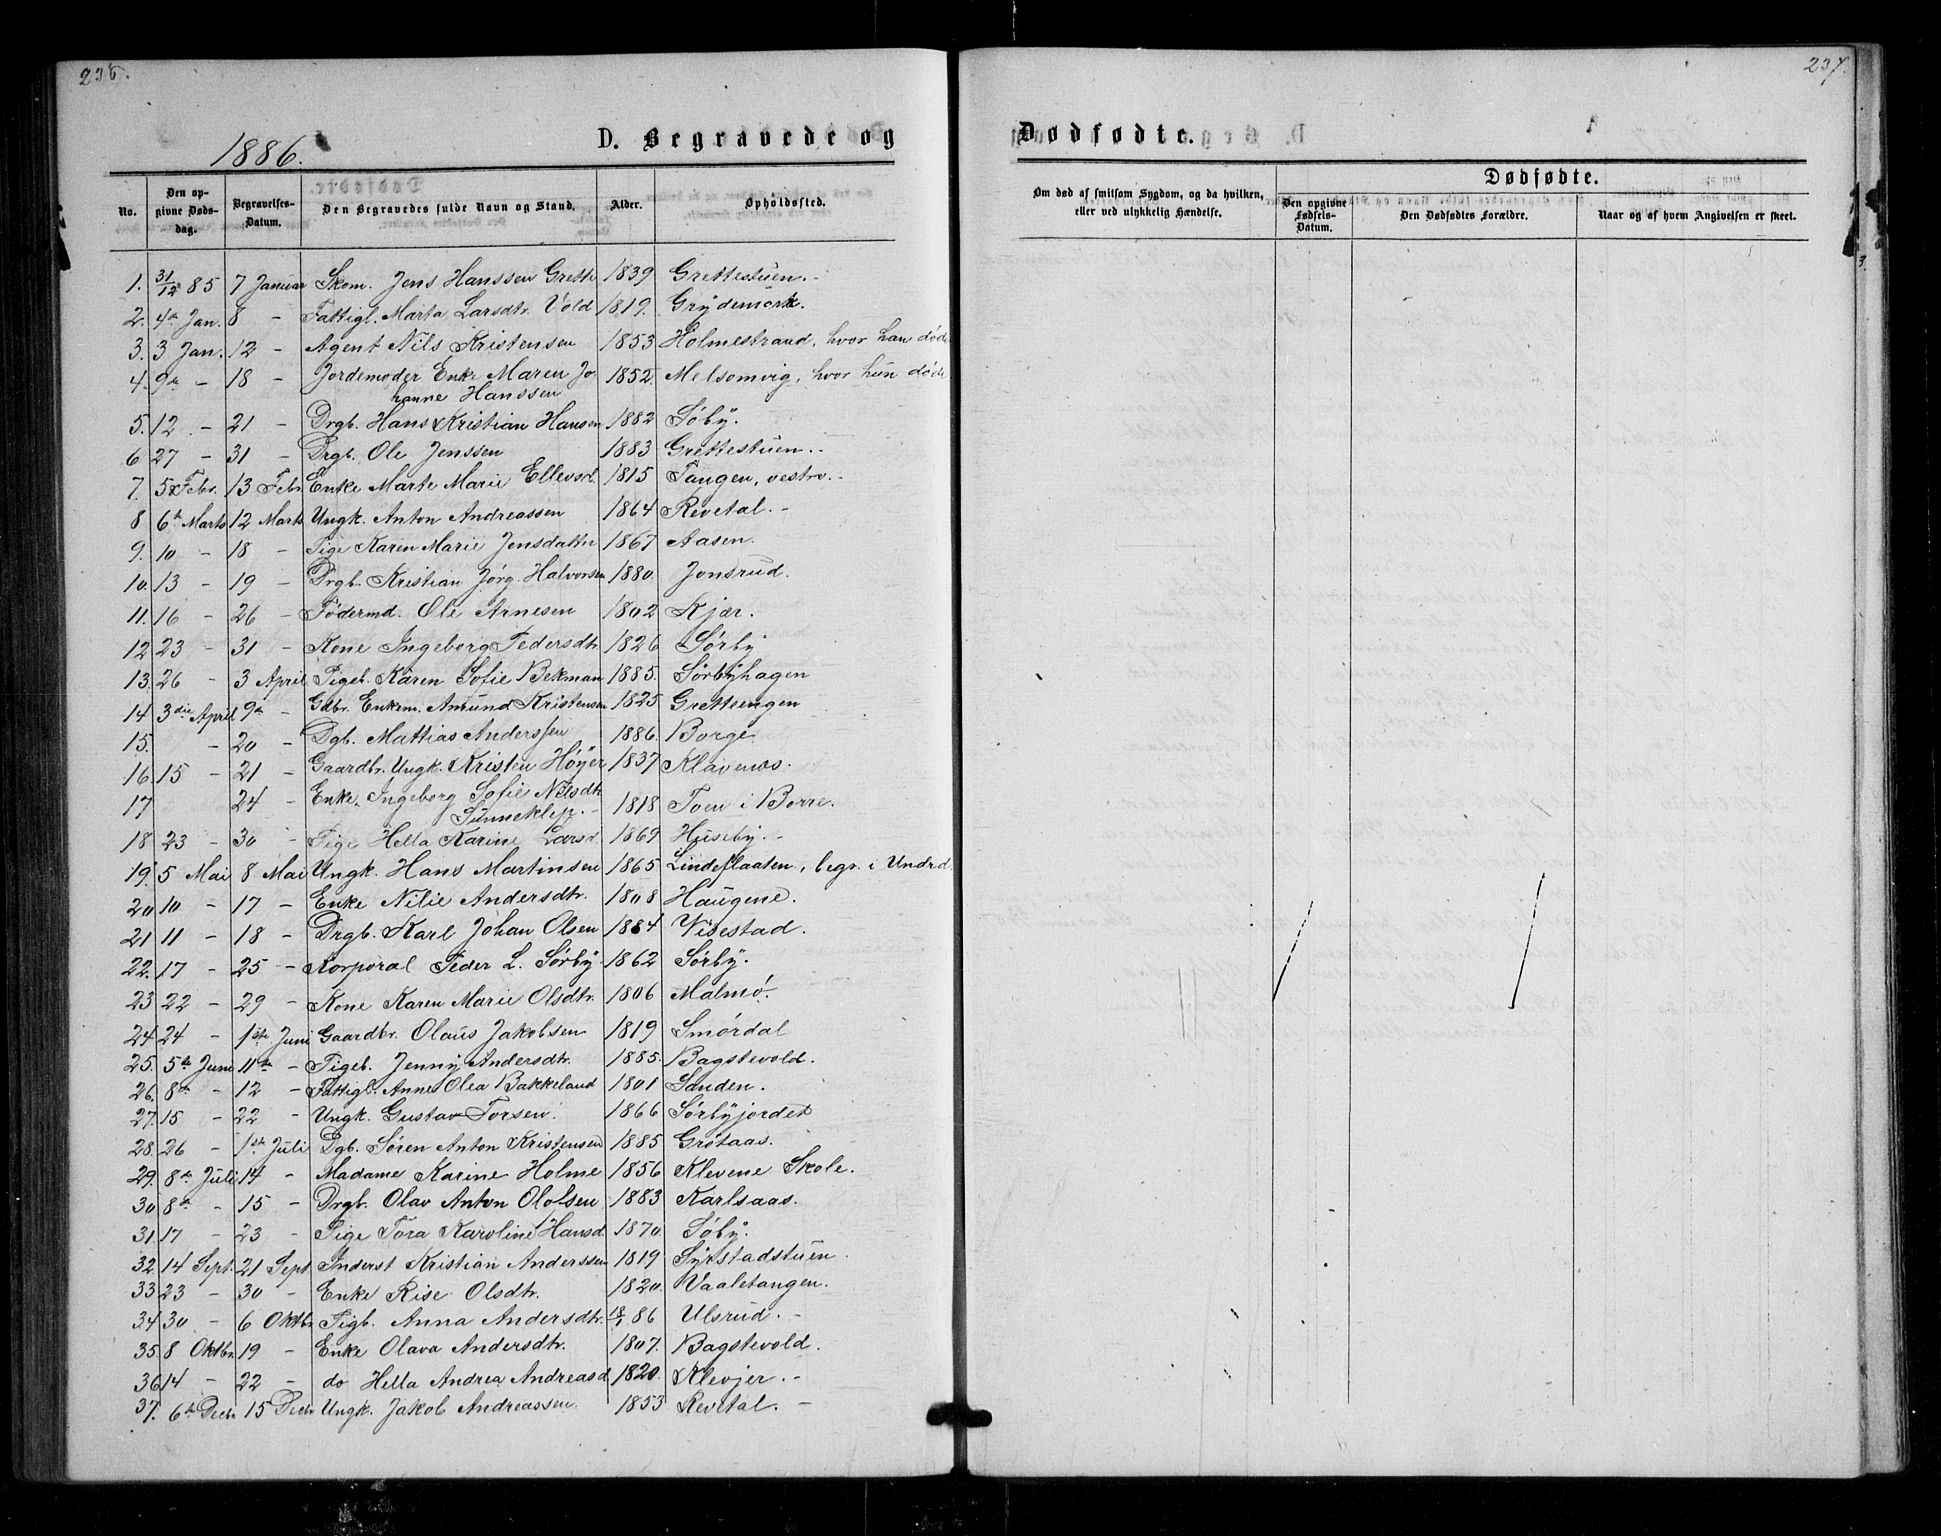 236.
1886.
D. Begravede og
No. | Den opgivne Dødsdag. | Begravelses-Datum. | Den Begravedes fulde Navn og Stand. | Alder. | Opholdssted.
1. 31/12 85 7 Januar Skom. Jens Hanssen Grette 1839 Grettestuen. -
2. 4de Jan. 8 - Fattigl. Marta Larsdtr. Vold 1819. Grydemork.
3. 3 Jan. 12 - Agent Nils Kristensen 1853 Holmestrand, hvor han døde
4. 9de - 18 - Jordemoder Enke Maren Jo 1852. Melsomvig, hvor hun døde
hanne Hanssen
5. 12 - 21 - Drgb. Hans Kristian Hansen 1882 Søby.
6 27 - 31 - Drgb. Ole Jenssen 1883 Grettestuen. -
7. 5te Febr. 13 Febr. Enke Marte Marie Ellevsd. 1815 Tangen, vestv. -
8 6te Marts 12 Marts Ungk. Anton Andreassen 1864 Revetal. -
9. 10 - 18 - Pige Karen Marie Jensdatter 1867 Aasen.
10. 13 - 19 - Drgb. Kristian Jørg. Halvorsen 1880. Jonsrud.
11. 16 - 26 - Födermd. Ole Arnesen 1802 Kjær.
12 23 - 31 - Kone Ingeborg Pedersdtr. 1826 Sørby
13. 26 - 3 April Pigeb. Karen Sofie Bekman 1885. Sørbyhagen
14 3die April 9de - Gdbr. Enkem. Amund Kristensen 1825 Gretteengen
15. - 20 - Dgb. Mattias Anderssen 1886. Borge
16. 15 - 21 - Gaardbr. Ungk. Kristen Høyer 1837 Klavenes.
17 24 - Enke. Ingeborg Sofie Nilsdtr.
Sunneklep. - 1818 Toen i Borre.
18 23 - 30 - Pige Hella Karine Larsd. 1869 Huseby. -
19. 5 Mai 8 Mai Ungk. Hans Martinsen 1865 Lindeflaaten, begr. i Undrd.
20 10 - 17 - Enke Nilie Andersdtr. 1808 Haugene.
21 11 - 18 - Drgb. Karl Johan Olsen 1884 Visestad.
22. 17 - 25 - Korporal Peder L. Sørby 1862 Sørby.
23 22 - 29 - Kone Karen Marie Olsdtr. 1806 Malmø.
24 24 - 1ste Juni Gaardbr. Olaus Jakobsen 1819 Smørdal
25. 5te Juni 11te - Pigeb. Jenny Andersdtr. 1885. Bagstevold.
26. 8de - 12 - Fattigl. Anne Olea Bakkeland 1801 Sanden.
27. 15 - 22 - Ungk. Gustav Torsen. 1866 Sørbyjordet
28. 26 - 1ste Juli Dgb. Søren Anton Kristensen 1885 Grøtaas.
29. 8de Juli 14 - Madame Karine Holme 1856 Klevene Skole.
30 8de - 15 - Drgb. Olav Anton Ololsen 1883 Karlsaas.
31. 17 - 23 - Pige Tora Karoline Hansd. 1870. Søby.
32. 14 Sept. 21 Sept. Inderst Kristian Anderssen 1819 Syrstadstuen.
33. 23 - 30 - Enke Rise Olsdtr. 1820. Vaaletangen.
34 30 - 6 Oktbr. Pigb. Anna Andersdtr. 18/1 86 Ulsrud. -
35. 8 Oktbr. 19 - Enke Olava Andersdtr. 1807. Bagstevold.
36 14 - 22 - do Hella Andrea Andreasd 1820. Klevjer. -
37. 6te Decbr. 15 Decbr. Ungk. Jakob Andreassen. 1853 Revetal. -
237.
Dødfødte.
Om død af smitsom Sygdom, og da hvilken, eller ved ulykkelig Hændelse. | Dødfødte.
Den opgivne Fødsels-Datum. | Den Dødfødtes Forældre. | Naar og af hvem Angivelsen er skeet.